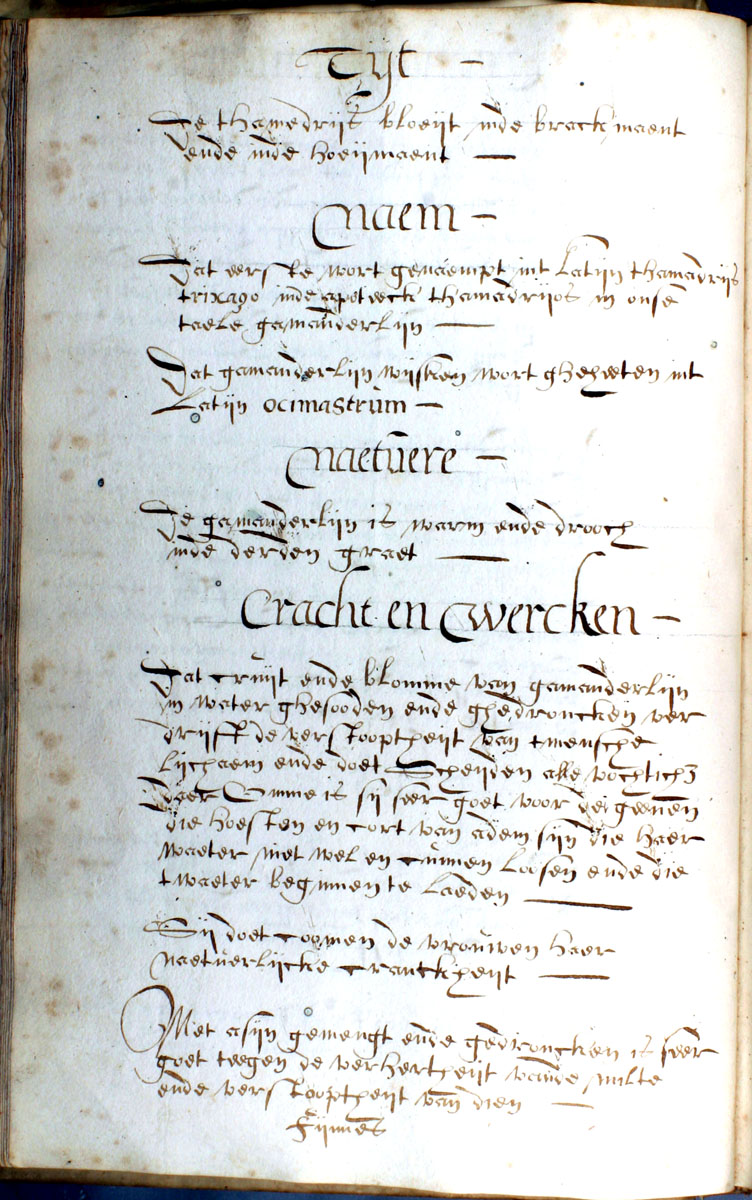 Tijt
De thamedrijs bloeijt inde brack maent
ende inde hoeijmaent
Naem
Dat eerste wort genaempt int Latijn thamadrijs
trixago inde apoteeck thamadrijos in onse
taele gamanderlijn
Dat gamanderlijn wijfken wort gheheeten int
Latijn ocimastrum
Naetuere
De gamanderlijn is warm ende drooch
inde derden graet
Cracht en Wercken
Dat cruijt ende blomme van gamanderlijn
in water ghesooden ende ghedroncken ver
drijft de verstooptheijt van tmensche
lijchaem ende doet Scheijden alle vochtich3
Daer Omme is sij seer goet voor de geenen
die hoesten en cort van adem sijn die haer
waeter niet wel en cunnen loosen ende die
twaeter beginnen te laeden
Sij doet coomen de vrouwen haer
naetuerlijcke cranckheijt
Met asijn gemengt ende gedroncken is seer
goet teegen de verhertheijt vande milte
ende verstooptheijt van dien